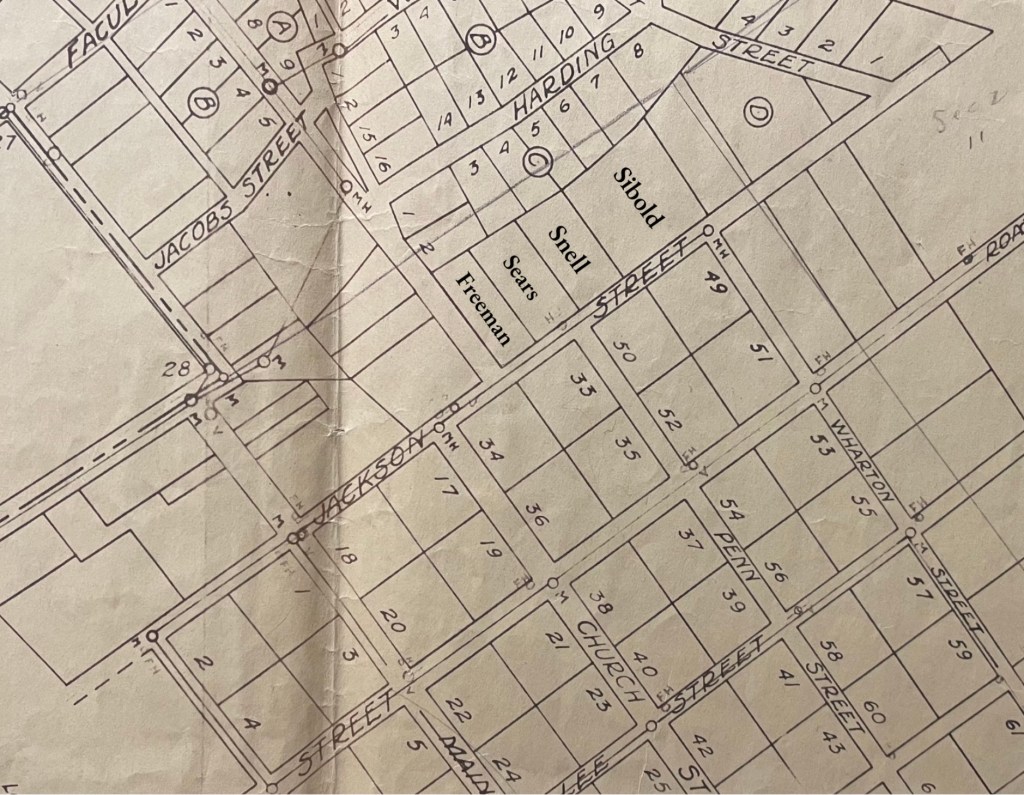 FACUL
1
2
3
4
5
B
8
A
9
1
2
3
4
B
9
10
11
12
13
14
15
16
HARDING
STREET
4
3
2
1
D
8
7
6
5
4
3
C
1
2
Sec 2
11
JACOBS STREET
M
MH
Sibold
Snell
Sears
Freeman
JACKSON STREET
MH
FH
ROA
28
M
M
M
V
FH
49
50
51
52
33
34
35
36
17
18
19
20
53
54
55
56
WHARTON STREET
37
38
39
40
PENN STREET
57
58
59
60
61
1
2
3
4
21
22
23
24
CHURCH ST
41
42
43
STREET
LEE STREET
MAIN
5
25
6